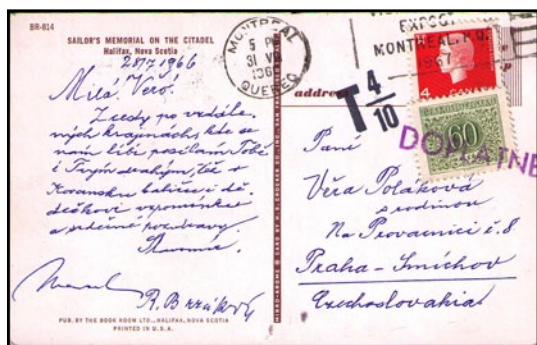 BR-814
SAILOR'S MEMORIAL ON THE CITADEL
Halifax, Nova Scotia
28/7 1966
Milá Věro!
Z cesty po vzdále-
ných krajinách, kde se
nám líbí posíláme Tobě
i Tvým drahým, též
babičce i dě-
dečkovi vzpomínku
a srdečné pozdravy.
PUB. BY THE BOOK ROOM LTD., HALIFAX, NOVA SCOTIA
PRINTED IN U.S.A.
MONTREAL
5 PM
31 VII
196
QUEBEC
EXPO
MONTREAL, P.Q.
1967
address
T 4/10
4
60
DOPLATNÉ
Paní
Věra Poláková
s rodinou
Na Provaznici č. 8
Praha - Smíchov
Czechoslovakia